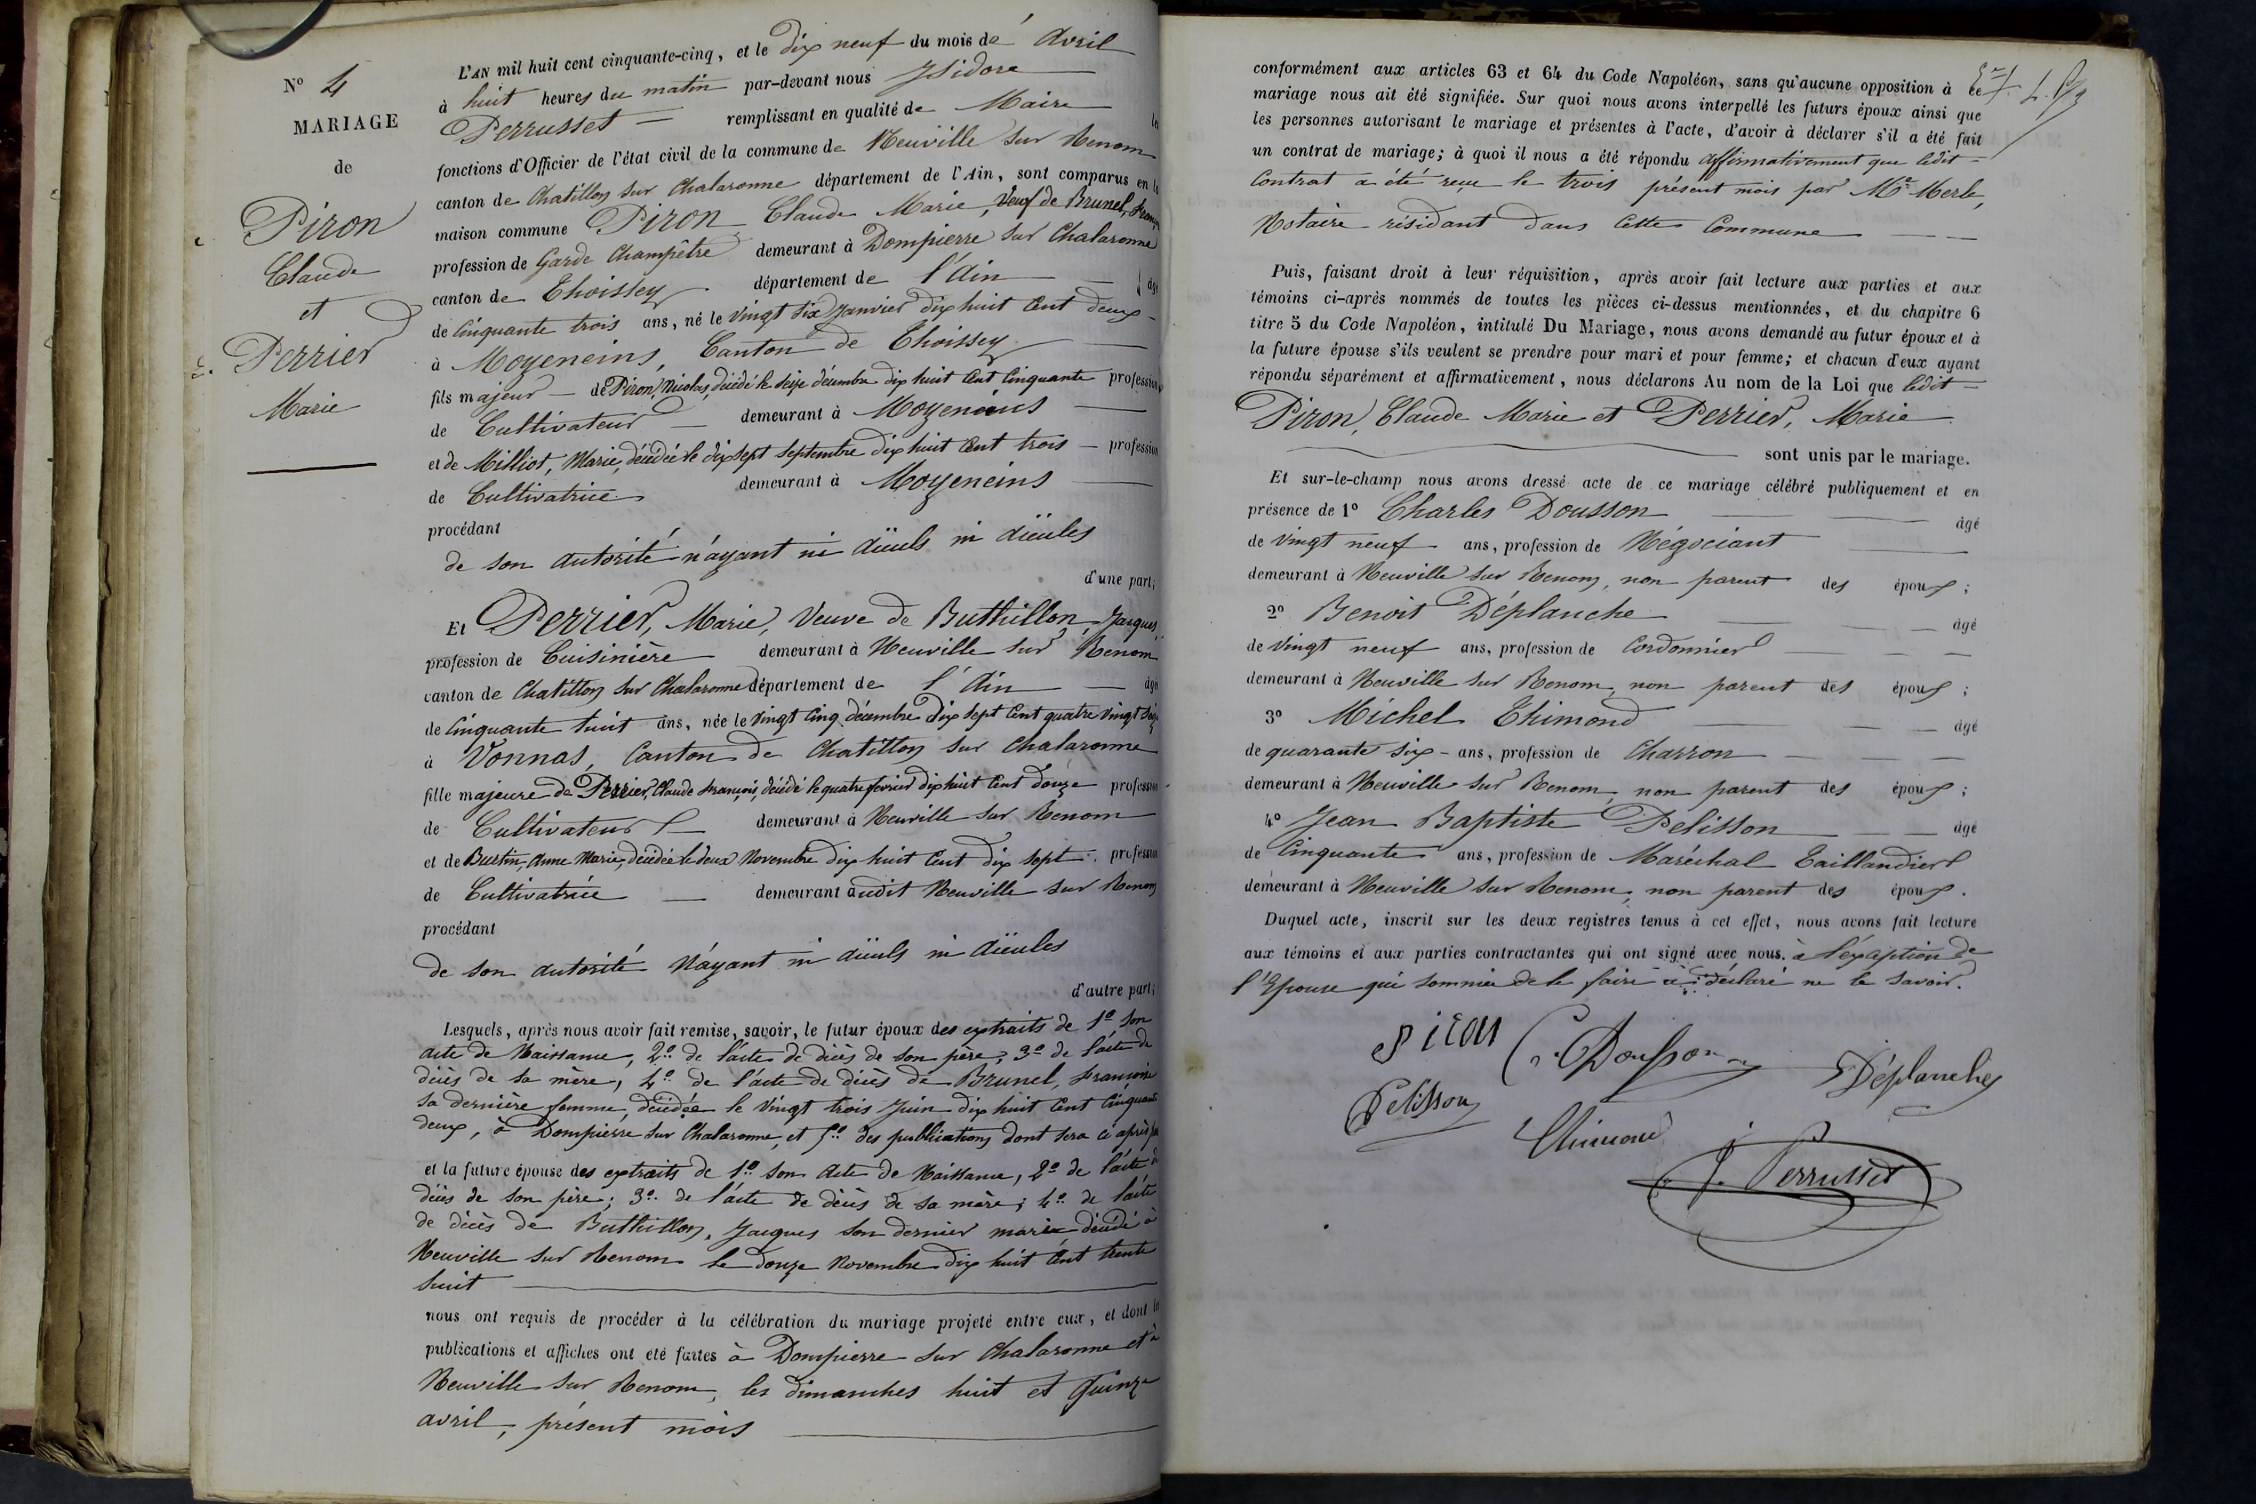 N° 4
MARIAGE
de
Piron
Claude
et
Perrier
Marie
L'AN mil huit cent cinquante-cinq, et le dix neuf du mois de Avril
à huit heures du matin par-devant nous Isidore
Perrusset remplissant en qualité de Maire les
fonctions d'Officier de l'état civil de la commune de Neuville sur Renom
canton de Chatillon sur Chalaronne département de l'Ain, sont comparus en la
maison commune Piron Claude Marie, Veuf de Brunel,
profession de Garde Champêtre demeurant à Dompierre sur Chalaronne
canton de Thoissey département de l'Ain âgé
de Cinquante trois ans, né le vingt six Janvier dix huit Cent deux
à Moyeneins, Canton de Thoissey
fils majeur de Piron, Nicolas, décédé le seize décembre dix huit Cent Cinquante profession
de Cultivateur demeurant à Moyeneins
et de Milliot, Marie, décédée le dix sept septembre dix huit Cent trois profession
de Cultivatrice demeurant à Moyeneins
procédant
de son autorité n'ayant ni aïeuls ni aïeules
d'une part;
Et Perrier, Marie, Veuve de Buthillon, Jacques,
profession de Cuisinière demeurant à Neuville sur Renom
canton de Chatillon sur Chalaronne département de l'Ain âgée
de Cinquante huit ans, née le vingt cinq décembre dix sept Cent quatre vingt
à Vonnas, Canton de Chatillon sur Chalaronne
fille majeure de Perrier, Claude François, décédé le quatre fevrier dix huit Cent douze profession
de Cultivateur demeurant à Neuville sur Renom
et de Bustin, Anne Marie, décédée le deux Novembre dix huit Cent dix sept profession
de Cultivatrice demeurant audit Neuville sur Renom
procédant
de son autorité N'ayant ni aïeuls ni aïeules
d'autre part;
Lesquels, après nous avoir fait remise, savoir, le futur époux des extraits de 1° son
acte de Naissance, 2° de l'acte de décès de son père; 3° de l'acte de
décès de sa mère, 4° de l'acte de décès de Brunel, Françoise
sa dernière femme, décédée le vingt trois Juin dix huit Cent Cinquante
deux, à Dompierre sur Chalaronne, et 5° des publications dont sera ci après
et la future épouse des extraits de 1° son acte de Naissance, 2° de l'acte de
décès de son père; 3° de l'acte de décès de sa mère; 4° de l'acte
de décès de Buthillon, Jacques son dernier mari décédé à
Neuville sur Renom le douze Novembre dix huit Cent trente
huit
nous ont requis de procéder à la célébration du mariage projeté entre eux, et dont les
publications et affiches ont été faites à Dompierre sur Chalaronne et à
Neuville sur Renom, les dimanches huit et quinze
avril, présent mois
conformément aux articles 63 et 64 du Code Napoléon, sans qu'aucune opposition à ce
mariage nous ait été signifiée. Sur quoi nous avons interpellé les futurs époux ainsi que
les personnes autorisant le mariage et présentes à l'acte, d'avoir à déclarer s'il a été fait
un contrat de mariage; à quoi il nous a été répondu affirmativement que ledit
Contrat a été reçu le trois présent mois par Me Merle,
Notaire résidant dans cette Commune
Puis, faisant droit à leur réquisition, après avoir fait lecture aux parties et aux
témoins ci-après nommés de toutes les pièces ci-dessus mentionnées, et du chapitre 6
titre 5 du Code Napoléon, intitulé Du Mariage, nous avons demandé au futur époux et à
la future épouse s'ils veulent se prendre pour mari et pour femme; et chacun d'eux ayant
répondu séparément et affirmativement, nous déclarons Au nom de la Loi que ledit
Piron, Claude Marie et Perrier, Marie
sont unis par le mariage.
Et sur-le-champ nous avons dressé acte de ce mariage célébré publiquement et en
présence de 1° Charles Dousson âgé
de vingt neuf ans, profession de Négociant
demeurant à Neuville sur Renom, non parent des époux;
2° Benoit Déplanche âgé
de vingt neuf ans, profession de Cordonnier
demeurant à Neuville sur Renom, non parent des époux;
3° Michel Thimond âgé
de quarante six ans, profession de Charron
demeurant à Neuville sur Renom, non parent des époux;
4° Jean Baptiste Pelisson âgé
de Cinquante ans, profession de Maréchal Taillandier
demeurant à Neuville sur Renom, non parent des époux.
Duquel acte, inscrit sur les deux registres tenus à cet effet, nous avons fait lecture
aux témoins et aux parties contractantes qui ont signé avec nous. à l'exception de
l'Epouse qui sommée de le faire a déclaré ne le savoir.
Piron C. Dousson Déplanche
Pelisson
Thimond
J. Perrusset